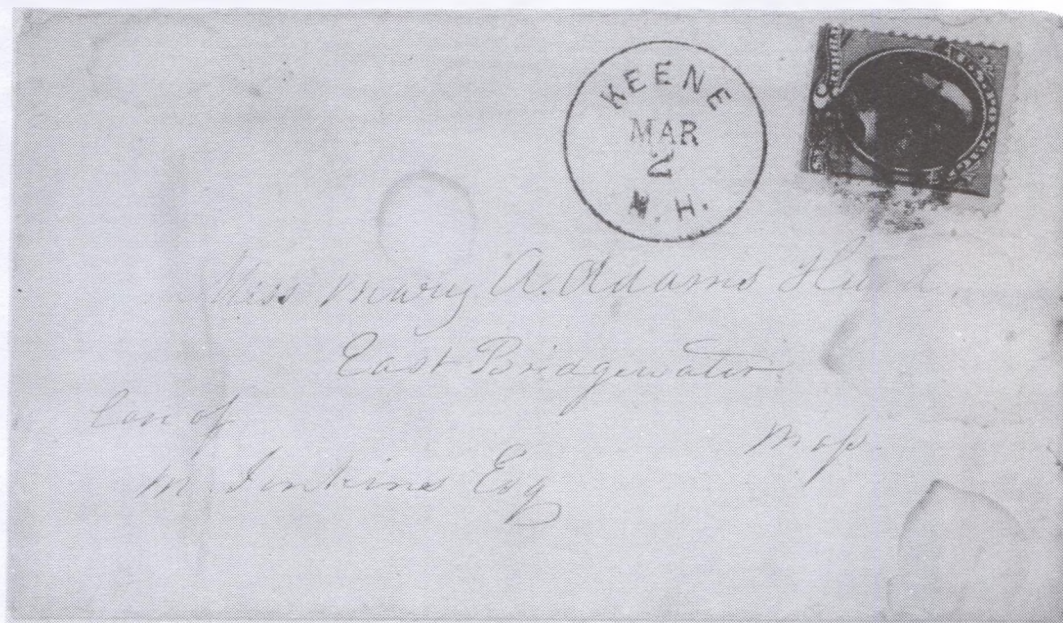 KEENE
MAR
2
N. H.
Miss Mary A. Adams Hurd.
East Bridgewater
Mass.
Care of
M. Jenkins Esq